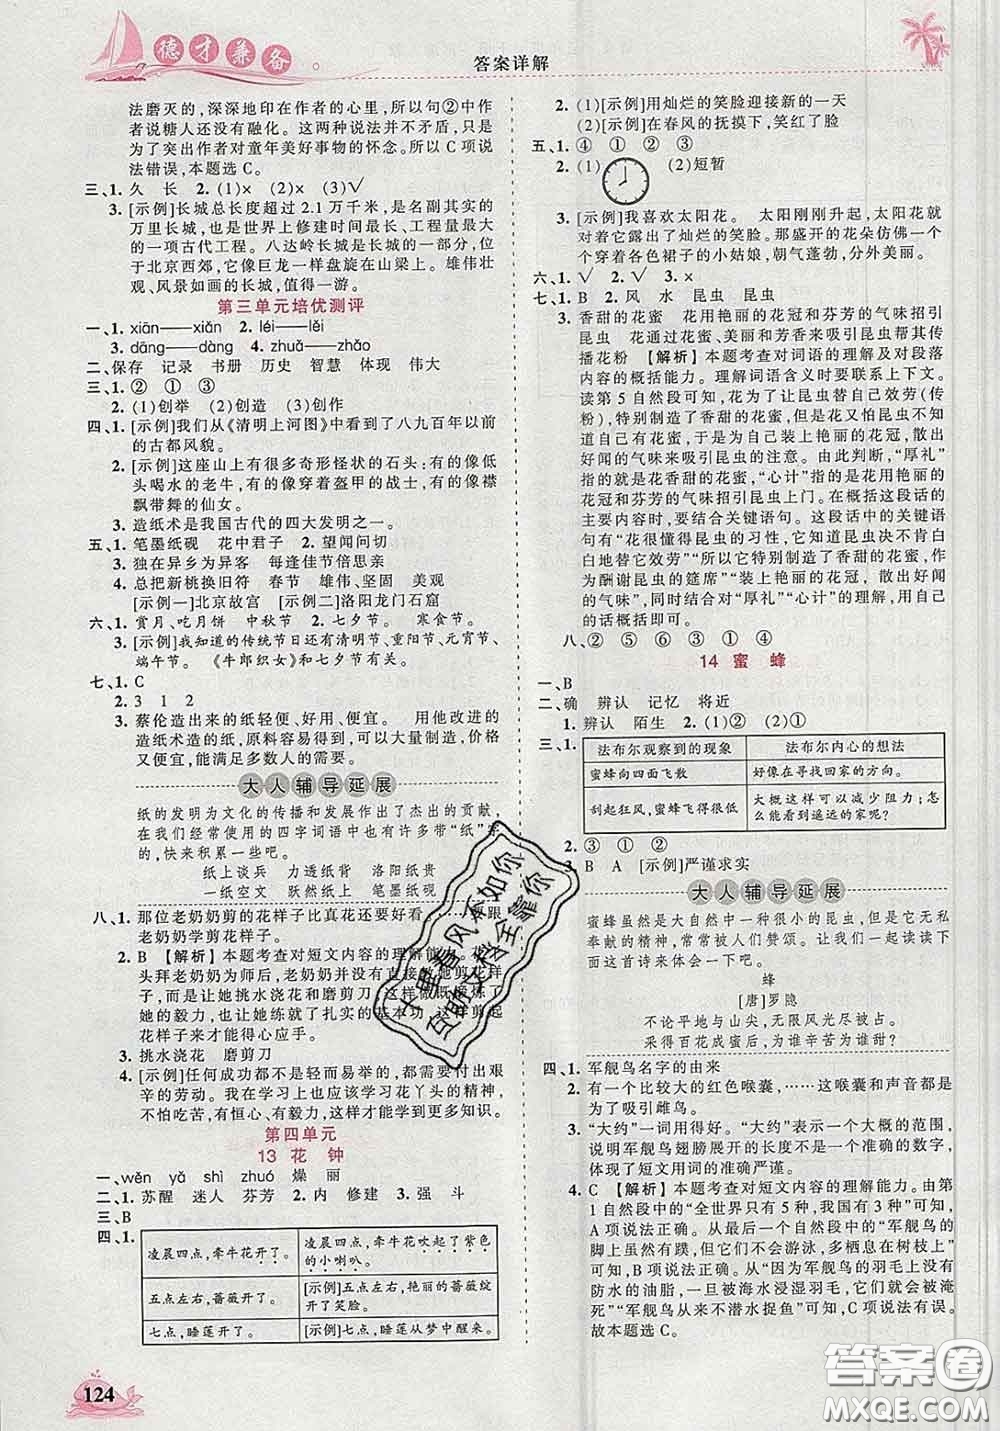 德才兼备
答案详解
法磨灭的，深深地印在作者的心里，所以句②中作
者说糖人还没有融化。这两种说法并不矛盾，只是
为了突出作者对童年美好事物的怀念。所以 C 项说
法错误，本题选 C。
三、1. 久　长　2. (1)×　(2)×　(3)√
3. [示例]长城总长度超过 2.1 万千米，是名副其实的
万里长城，也是世界上修建时间最长、工程量最大
的一项古代工程。八达岭长城是长城的一段，位于
北京西郊，它像巨龙一样盘旋在山梁上。雄伟壮
观、风景如画的长城，值得一游。
第三单元培优测评
一、1. xiān——xiǎn　2. léi——lěi
3. dāng——dàng　4. zhuǎ——zhǎo
二、保存　记录　书册　历史　智慧　体现　伟大
三、1. ②　①　③
2. (1)创举　(2)创造　(3)创作
四、1. [示例]我们从《清明上河图》中看到了八九百年以前
的古都风貌。
2. [示例]这座山上有很多奇形怪状的石头：有的像
低头喝水的老牛，有的像穿着盔甲的战士，有的像襟
飘带舞的仙女。
3. 造纸术是我国古代的四大发明之一。
五、1. 笔墨纸砚　花中君子　2. 望闻问切
3. 独在异乡为异客　每逢佳节倍思亲
4. 总把新桃换旧符　春节　雄伟、坚固　美观
[示例一]北京故宫　[示例二]洛阳龙门石窟
六、1. 赏月、吃月饼　中秋节　2. 七夕节。　寒食节。
3. [示例]我知道的传统节日还有清明节、重阳节、元宵节、
端午节。　《牛郎织女》和七夕节有关。
七、1. C
2. 3　1　2
3. 蔡伦造出来的纸轻便、好用、便宜。　用他改进的
造纸术造的纸，原料容易得到，可以大量制造，价格又
便宜，能满足多数人的需要。
大人辅导延展
纸的发明为文化的传播和发展作出了杰出的贡献，
在我们经常使用的四字词语中也有许多带“纸”字
的，快来积累一些吧。
纸上谈兵　力透纸背　洛阳纸贵
一纸空文　跃然纸上　笔墨纸砚
八、1. 那位老奶奶剪的花样子比真花还要好看。　跟
老奶奶学剪花样子。
2. B　【解析】本题考查对短文内容的理解能力。花丫
头拜老奶奶为师后，老奶奶并没有直接教她剪花样子，
而是先让她挑水浇花和磨剪刀，这样做既锻炼了
她的毅力，也让她练了扎实的基本功，这样剪起
花样子来才能得心应手。
3. 挑水浇花　磨剪刀
4. [示例]任何成功都不会轻而易举的，都需要付出艰
辛的劳动。我在学习上也应该学习花丫头的精神，
不怕吃苦，有恒心，有毅力，这样才能学到更多知识。
第四单元
13 花　钟
一、wěn　yǎ　shì　zhuó　燥　丽
二、1. 苏醒　迷人　芬芳　2. 内　修建　3. 强　斗
三、B
四、1.
凌晨四点，牵牛花开了。　凌晨四点，牵牛花吹起了紫色的小喇叭。
五点左右，蔷薇开了。　[示例]五点左右，艳丽的蔷薇绽开了笑脸。
七点，睡莲开了。　[示例]七点，睡莲从梦中醒来。
2. (1)[示例]用灿烂的笑脸迎接新的一天
(2)[示例]在春风的抚摸下，笑红了脸
五、1. ④　①　②　③
2. (1)　(2)短暂
3. [示例]我喜欢太阳花。　太阳刚刚升起，太阳花就
对着它露出了灿烂的笑脸。那盛开的花朵仿佛一个
个穿着各色裙子的小姑娘，朝气蓬勃，分外美丽。
六、1. √　2. √　3. ×
七、1. B　2. 风　水　昆虫　昆虫
3. 香甜的花蜜　花用艳丽的花冠和芬芳的气味招引
昆虫　花通过花蜜、美丽和芳香来吸引昆虫，让其传
播花粉　【解析】本题考查对词语的理解及对段落
内容的概括能力。理解词语含义时要联系上下文。
读第 5 自然段可知，花为了让昆虫给自己效劳(传
粉)，特别制造了香甜的花蜜，但又怕昆虫不知道自
己有花蜜，于是花又装上了艳丽的花冠，散出
好闻的气味来吸引昆虫的注意。由此判断，“厚礼”
指的是花香甜的花蜜，“心计”指的是花用艳丽的
花冠和芬芳的气味招引昆虫上门。在概括这段话意
时，要结合关键语句。这段话中的关键语句
有“花很懂得昆虫的习性，它知道昆虫不肯白
白地替它效劳”“所以它特别制造了香甜的花蜜，作
为酬谢昆虫的筵席”“装上艳丽的花冠，散出好闻
的气味”，同时结合对“厚礼”“心计”的理解，用自己
的话概括即可。
八、②　⑤　⑥　③　①　④
14 蜜　蜂
一、B
二、确　辨认　记忆　将近
1. 辨认　陌生　2. (1)②　(2)①
三、1.
法布尔观察到的现象　法布尔内心的想法
蜜蜂向四面飞散　好像在寻找回家的方向。
刮起狂风，蜜蜂飞得很低　大概这样可以减少阻力；怎么能看到遥远的家呢？
2. ③　①　②
3. B　A　[示例]严谨求实
大人辅导延展
蜜蜂虽然是大自然中一种很小的昆虫，但它无私
奉献的精神，常常被人们赞颂。让我们一起读读下
面这首诗来体会一下吧。
蜂
[唐]罗隐
不论平地与山尖，无限风光尽被占。
采得百花成蜜后，为谁辛苦为谁甜？
四、1. 军舰鸟名字的由来
2. 有一个比较大的红色喉囊，……这喉囊和声音都是
为了吸引雌鸟。
3. “大约”一词用得好。“大约”表示一个大概的范围，
说明军舰鸟翅膀展开的长度不是一个准确的数字，
体现了短文用词的准确严谨。
4. C　【解析】本题考查对短文内容的理解能力。由第
1 自然段中的“全世界只有 5 种，我国有 3 种”可知，
A 项说法正确。从最后一个自然段中的“军舰鸟的
脚上虽然有蹼，但不会游泳，多栖息在树枝上”可
知，B 项说法正确。从“因为军舰鸟的羽毛上没有
防水的油脂，一旦被海水浸湿羽毛，它就会被淹
死”“军舰鸟从来不潜水捕鱼”可知，C 项说法有误。
故本题选 C。
十里春风不如你
互助文科全靠你
124
答案圈
MXQE.COM